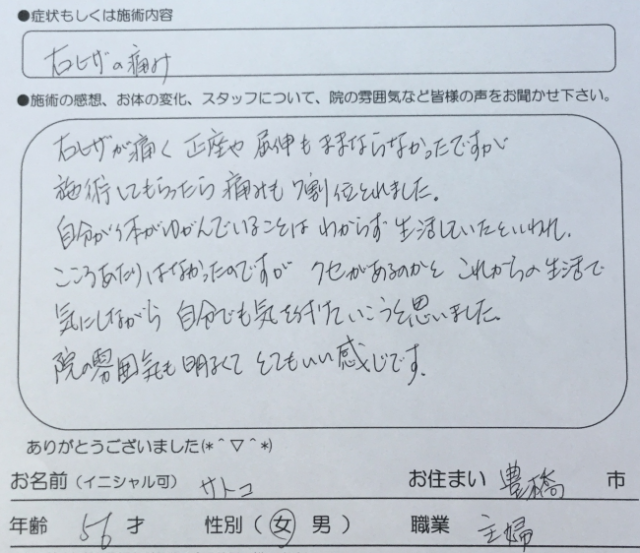 ●症状もしくは施術内容
右ヒザの痛み
●施術の感想、お体の変化、スタッフについて、院の雰囲気など皆様の声をお聞かせ下さい。
右ヒザが痛く 正座や 屈伸も ままならなかったですが
施術してもらったら 痛みも 7割位とれました。
自分が体がゆがんでいることは わからず 生活していたといわれ、
こころあたりはなかったのですが クセがあるのかと これからの生活で
気にしながら 自分でも気を付けていこうと思いました。
院の雰囲気も明るくて とてもいい感じです。
ありがとうございました(*^▽^*)
お名前(イニシャル可) サトコ お住まい 豊橋 市
年齢 56 才 性別( 女 男 ) 職業 主婦